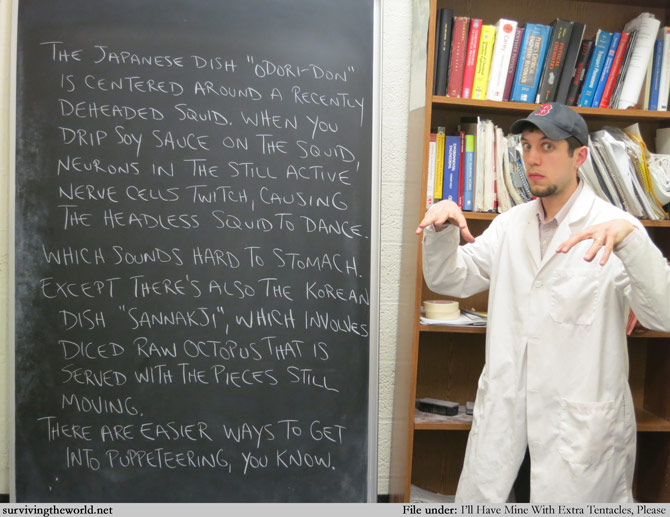 THE JAPANESE DISH "ODORI-DON"
IS CENTERED AROUND A RECENTLY
DEHEADED SQUID. WHEN YOU
DRIP SOY SAUCE ON THE SQUID,
NEURONS IN THE STILL ACTIVE
NERVE CELLS TWITCH, CAUSING
THE HEADLESS SQUID TO DANCE.
WHICH SOUNDS HARD TO STOMACH.
EXCEPT THERE'S ALSO THE KOREAN
DISH "SANNAKJI", WHICH INVOLVES
DICED RAW OCTOPUS THAT IS
SERVED WITH THE PIECES STILL
MOVING.
THERE ARE EASIER WAYS TO GET
INTO PUPPETEERING, YOU KNOW.
B
survivingtheworld.net
File under: I'll Have Mine With Extra Tentacles, Please